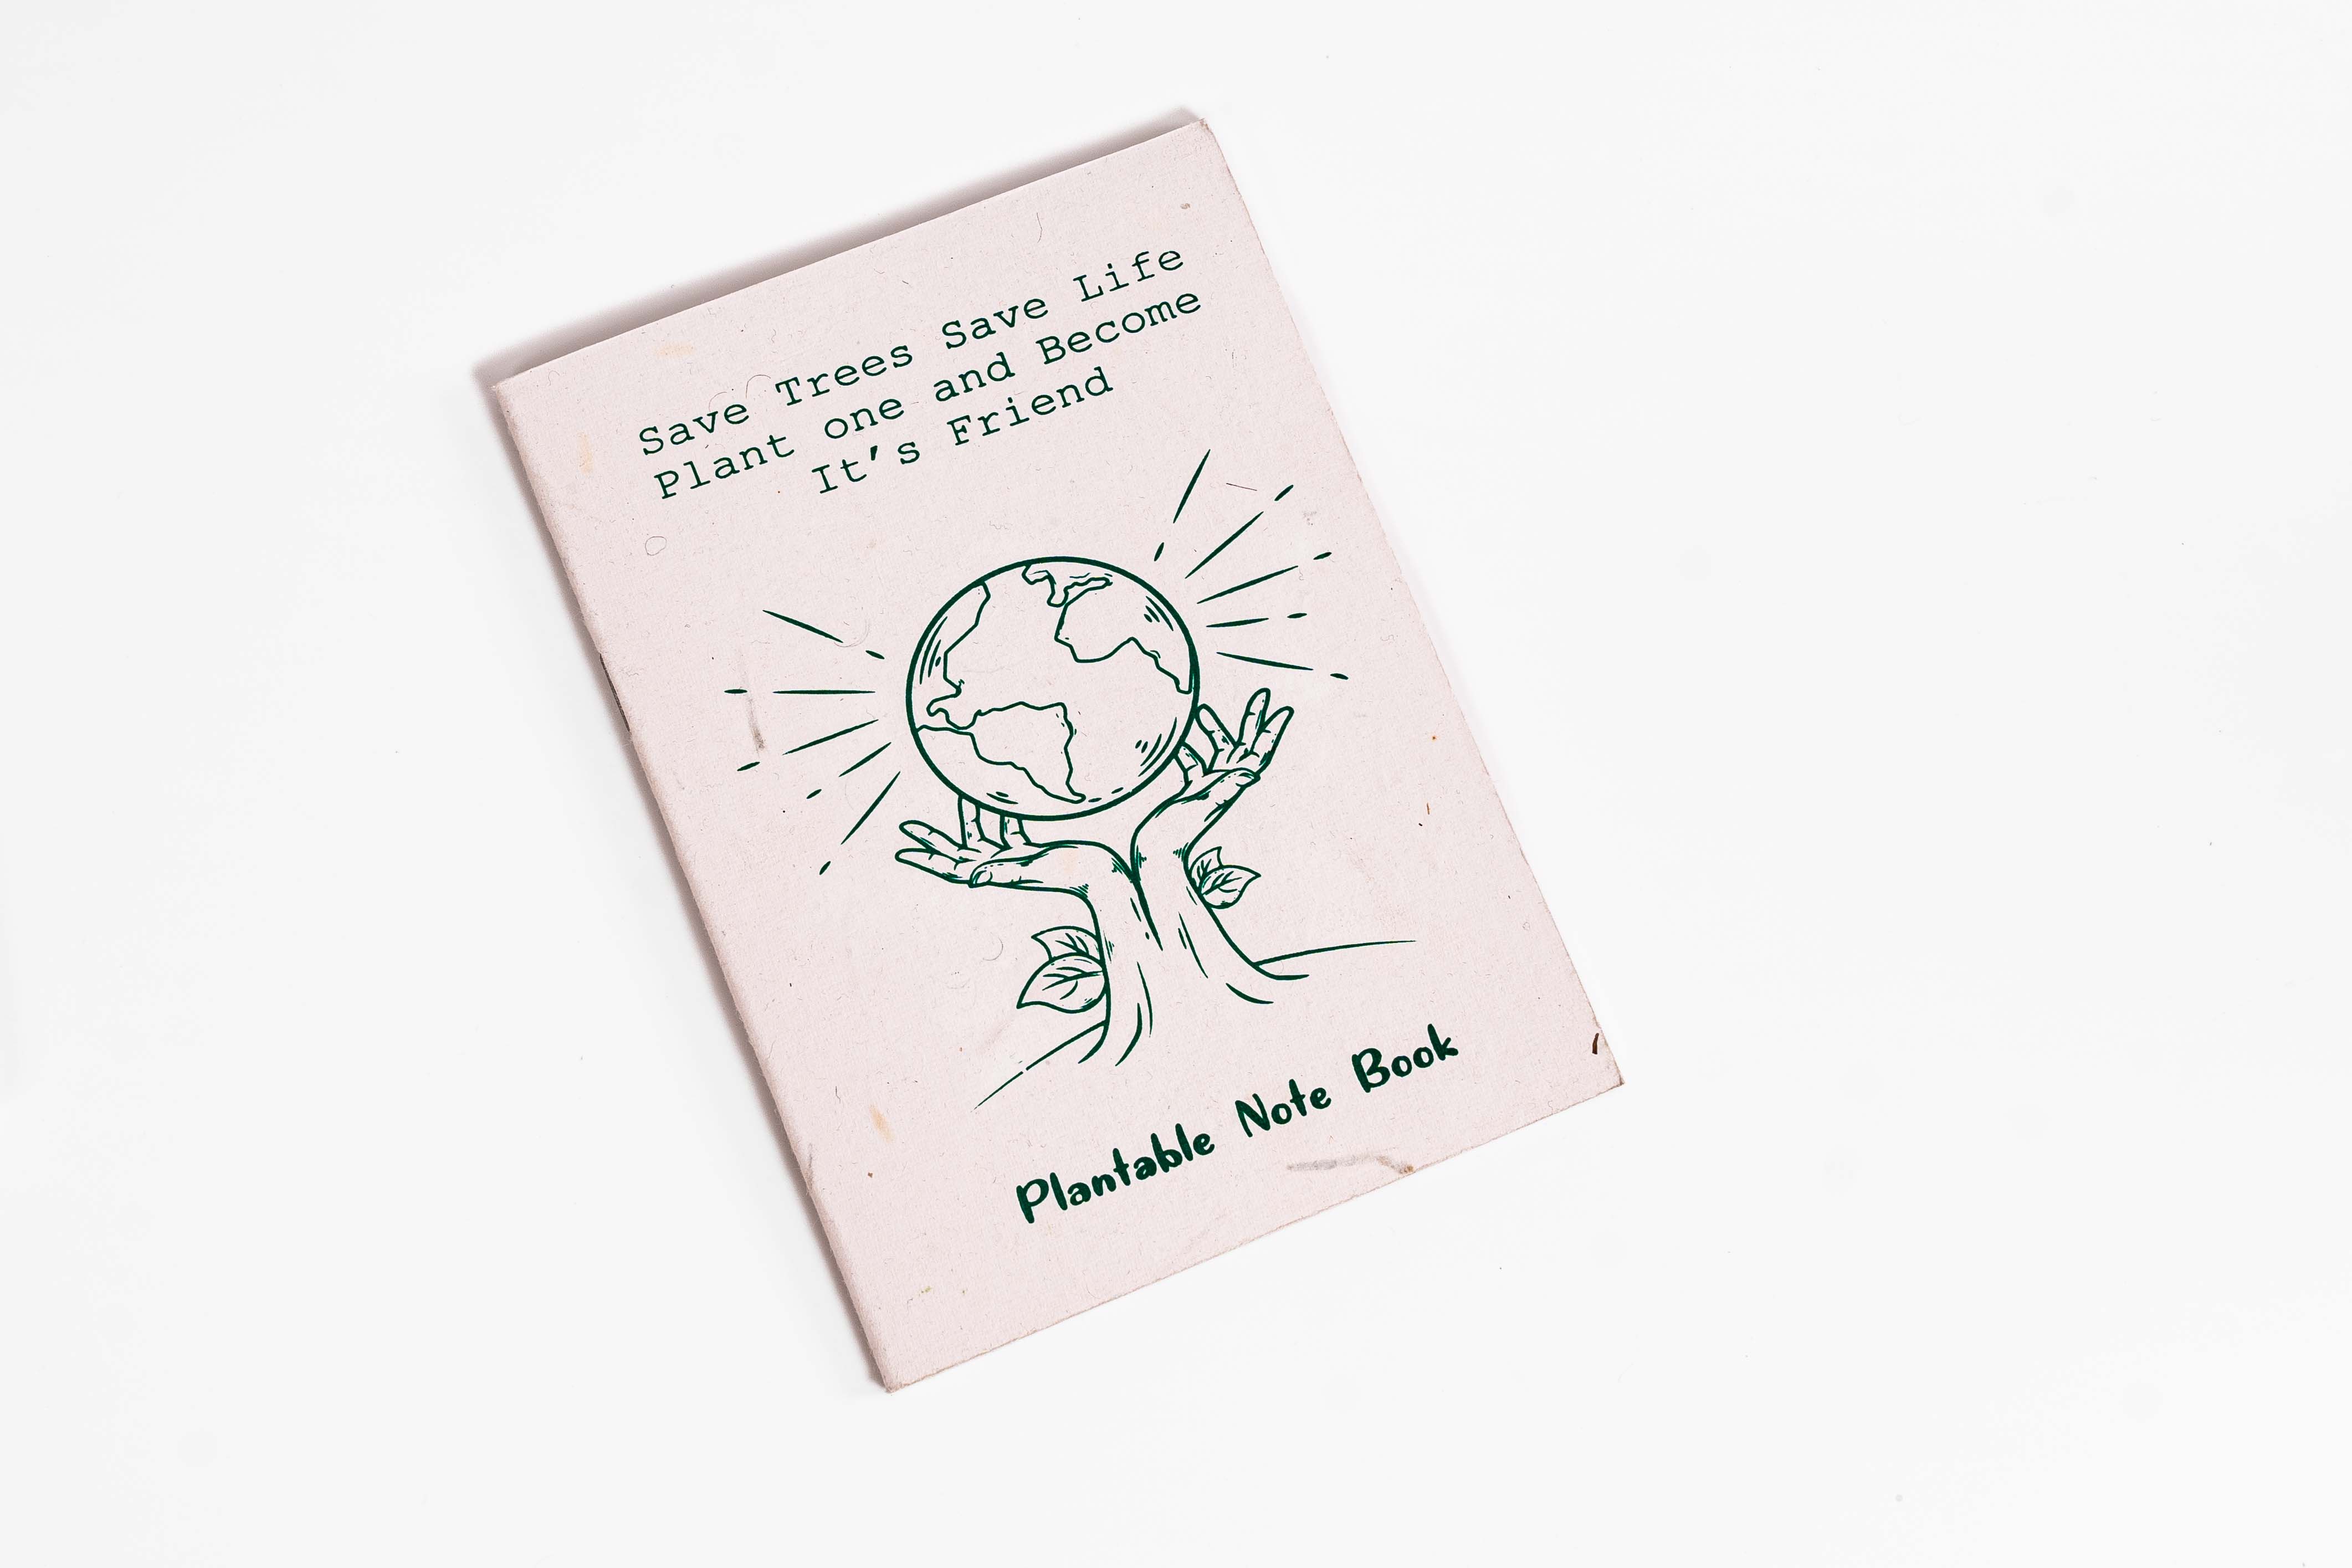 Save Trees Save Life
Plant one and Become
It's Friend
Plantable Note Book